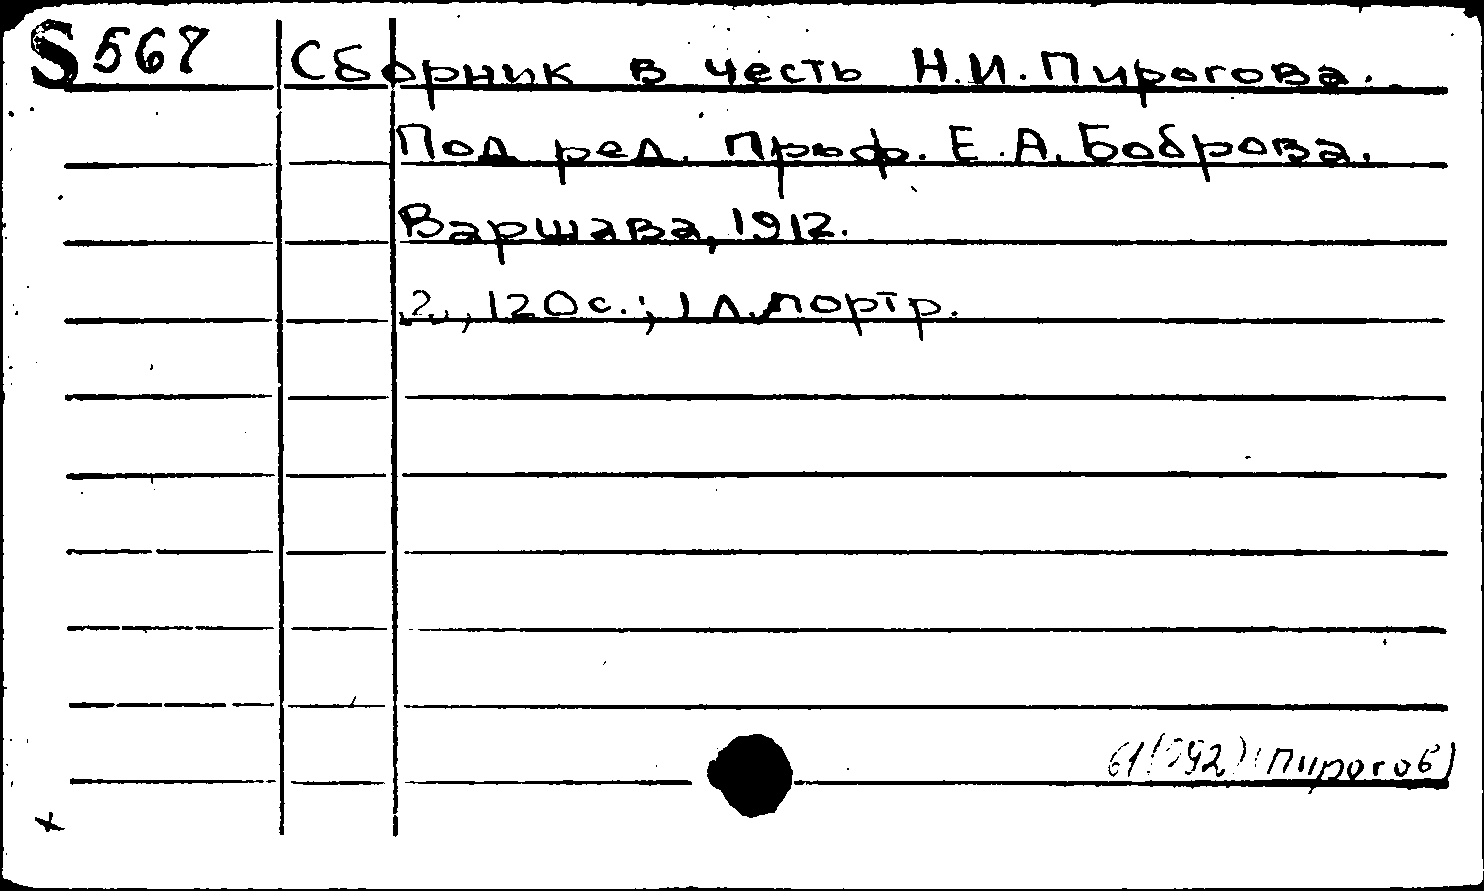 S 567 Сборник в честь Н.И.Пирогова.
Под ред. Проф. Е.А.Боброва.
Варшава, 1912.
2, 120с.; 1 л. портр.
61(092)(Пирогов)